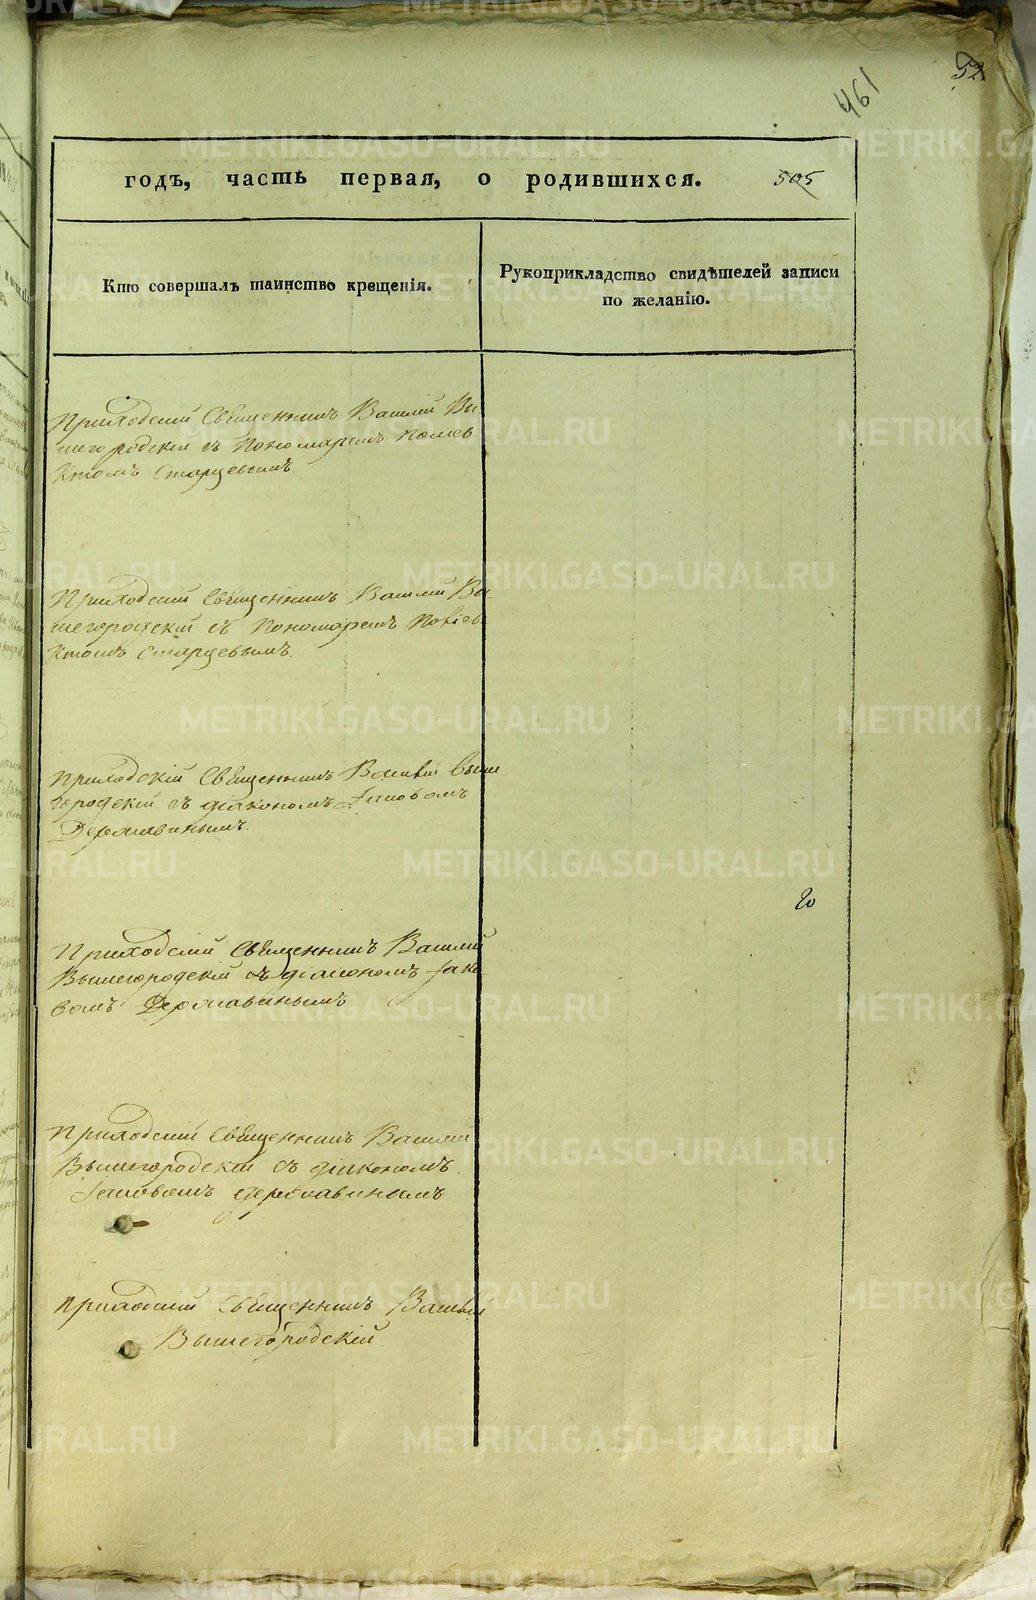 52
461
годъ, часть первая, о родившихся. 505
Кто совершалъ таинство крещенія.
Рукоприкладство свидѣтелей записи
по желанію.
Приходскій Священникъ Василій Вы
шегородскій съ Пономаремъ
Старцевымъ.
Приходскій Священникъ Василій Вы
шегородскій съ Пономаремъ
Старцевымъ.
Приходскій Священникъ Василій Выше
городскій съ діакономъ Іаковомъ
Державинымъ.
Приходскій Священникъ Василій
Вышегородскій съ діакономъ Іако
вомъ Державинымъ
Приходскій Священникъ Василій
Вышегородскій съ діакономъ
Іаковомъ Державинымъ
Приходскій Священникъ Василій
Вышегородскій
METRIKI.GASO-URAL.RU